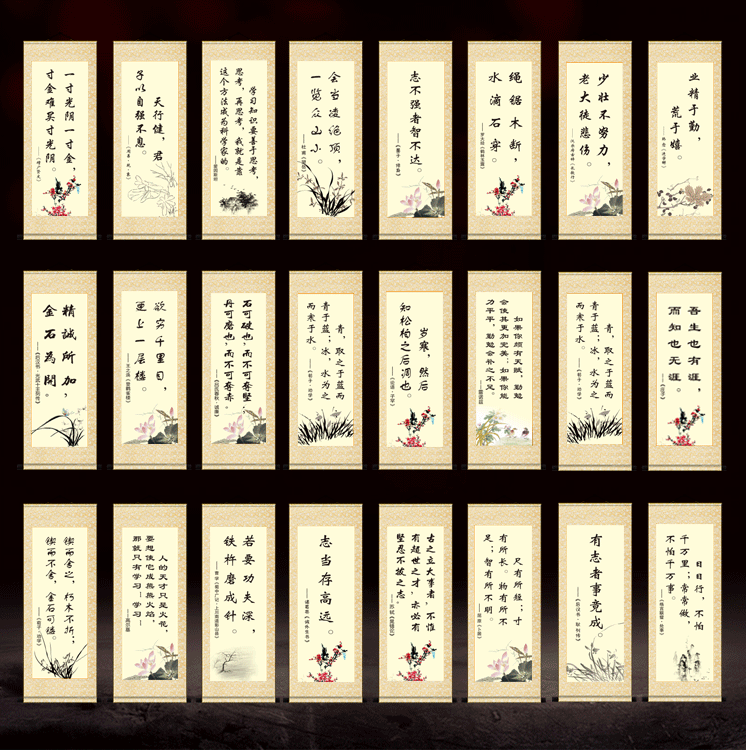 一寸光阴一寸金，
寸金难买寸光阴。
天行健，君
子以自强不息。
学习知识要善于思考，
思考，再思考，我就是靠
这个方法成为科学家的。
——爱因斯坦
会当凌绝顶，
一览众山小。
志不强者智不达。
——《墨子·修身》
绳锯木断，
水滴石穿。
——罗大经《鹤林玉露》
少壮不努力，
老大徒悲伤。
业精于勤，
荒于嬉。
——韩愈《进学解》
精誠所加，
金石為開。
欲穷千里目，
更上一层楼。
——王之涣《登鹳雀楼》
石可破也，而不可夺坚；
丹可磨也，而不可夺赤。
——《吕氏春秋·诚廉》
青，取之于蓝而
青于蓝；冰，水为之
而寒于水。
——《荀子·劝学》
岁寒，然后
知松柏之后凋也。
——《论语·子罕》
如果你颇有天赋，勤勉
会使其更加完美；如果你能
力平平，勤勉会补之不足。
青，取之于蓝而
青于蓝；冰，水为之
而寒于水。
——《荀子·劝学》
吾生也有涯，
而知也无涯。
——《庄子》
锲而舍之，朽木不折；
锲而不舍，金石可镂。
——《荀子·劝学》
人的天才只是火花，
要想使它成熊熊火焰，
那就只有学习！学习！
——高尔基
若要功夫深，
铁杵磨成针。
志当存高远。
——诸葛亮《诫外生书》
古之立大事者，不惟
有超世之才，亦必有
坚忍不拔之志。
——苏轼《晁错论》
尺有所短；寸
有所长。物有所不
足；智有所不明。
——屈原《卜居》
有志者事竟成。
日日行，不怕
千万里；常常做，
不怕千万事。
——《格言联璧·处事》